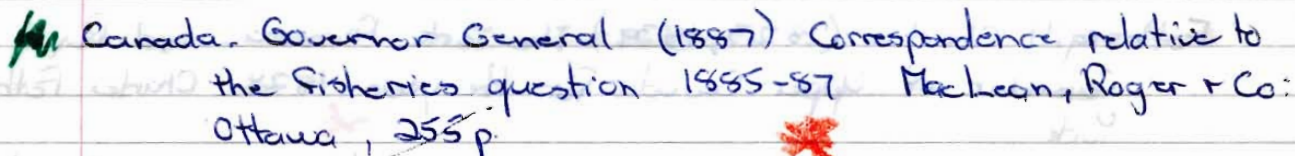 Canada. Governor General (1887) Correspondence relative to
the fisheries question 1885-87 MacLean, Roger + Co:
Ottawa, 255p.